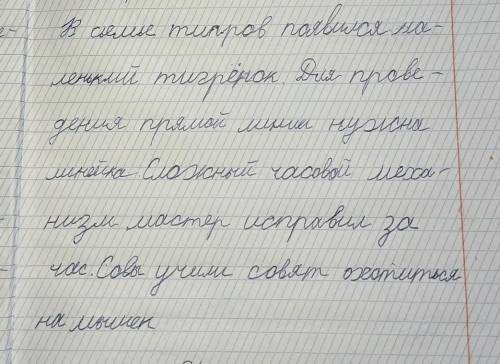 В семье тигров появился ма-
ленький тигрёнок. Для прове-
дения прямой линии нужна
линейка. Сложный часовой меха-
низм мастер исправил за
час. Совы учили совят охотиться
на мышек